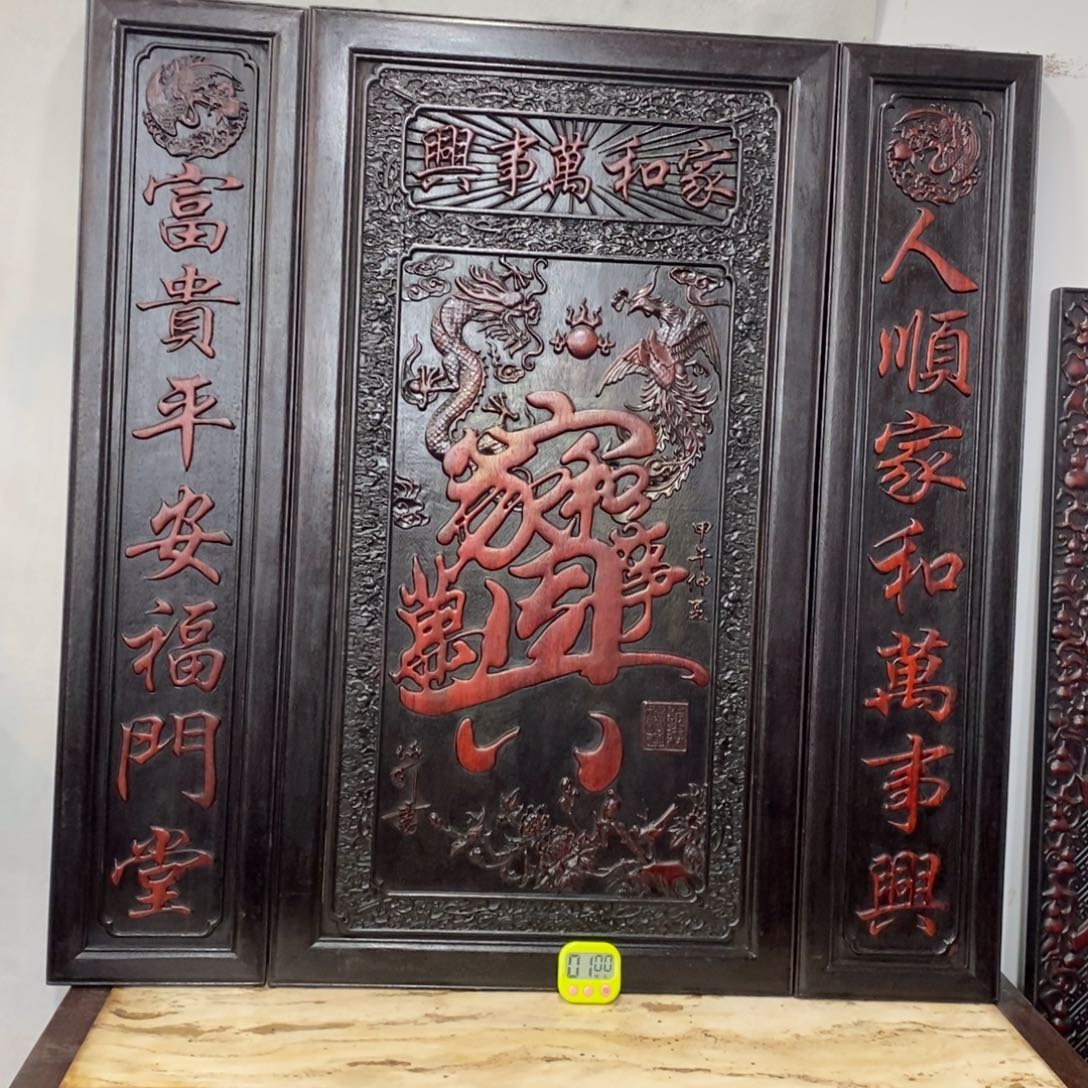 家和萬事興
人順家和萬事興
家和萬事興
甲午仲夏
富貴平安福門堂
01 00